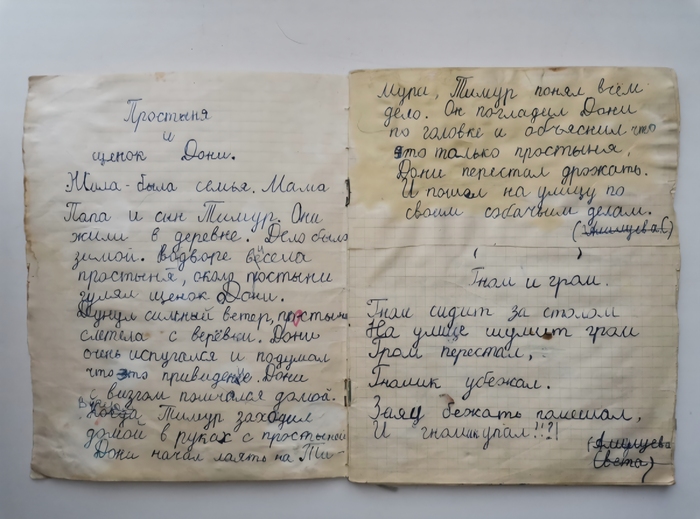 Простыня
и
щенок Дони.
Жила-была семья. Мама
Папа и сын Тимур. Они
жили в деревне. Дело было
зимой. Водворе висела
простыня, около простыни
гулял щенок Дони.
Дунул сильный ветер, простыня
слетела с верёвки. Дони
очень испугался и подумал
что это привидение. Дони
с визгом помчался домой.
Когда Тимур заходил
домой в руках с простыней
Дони начал лаять на Ти-
мура, Тимур понял в чём
дело. Он погладил Дони
по головке и объяснил что
это только простыня,
Дони перестал дрожать.
И пошел на улицу по
своим собачьим делам.
Гном и гром.
Гном сидит за столом
На улице шумит гром
Гром перестал,
Гномик убежал.
Заяц бежать помешал,
И гномик упал!!?!
Света)